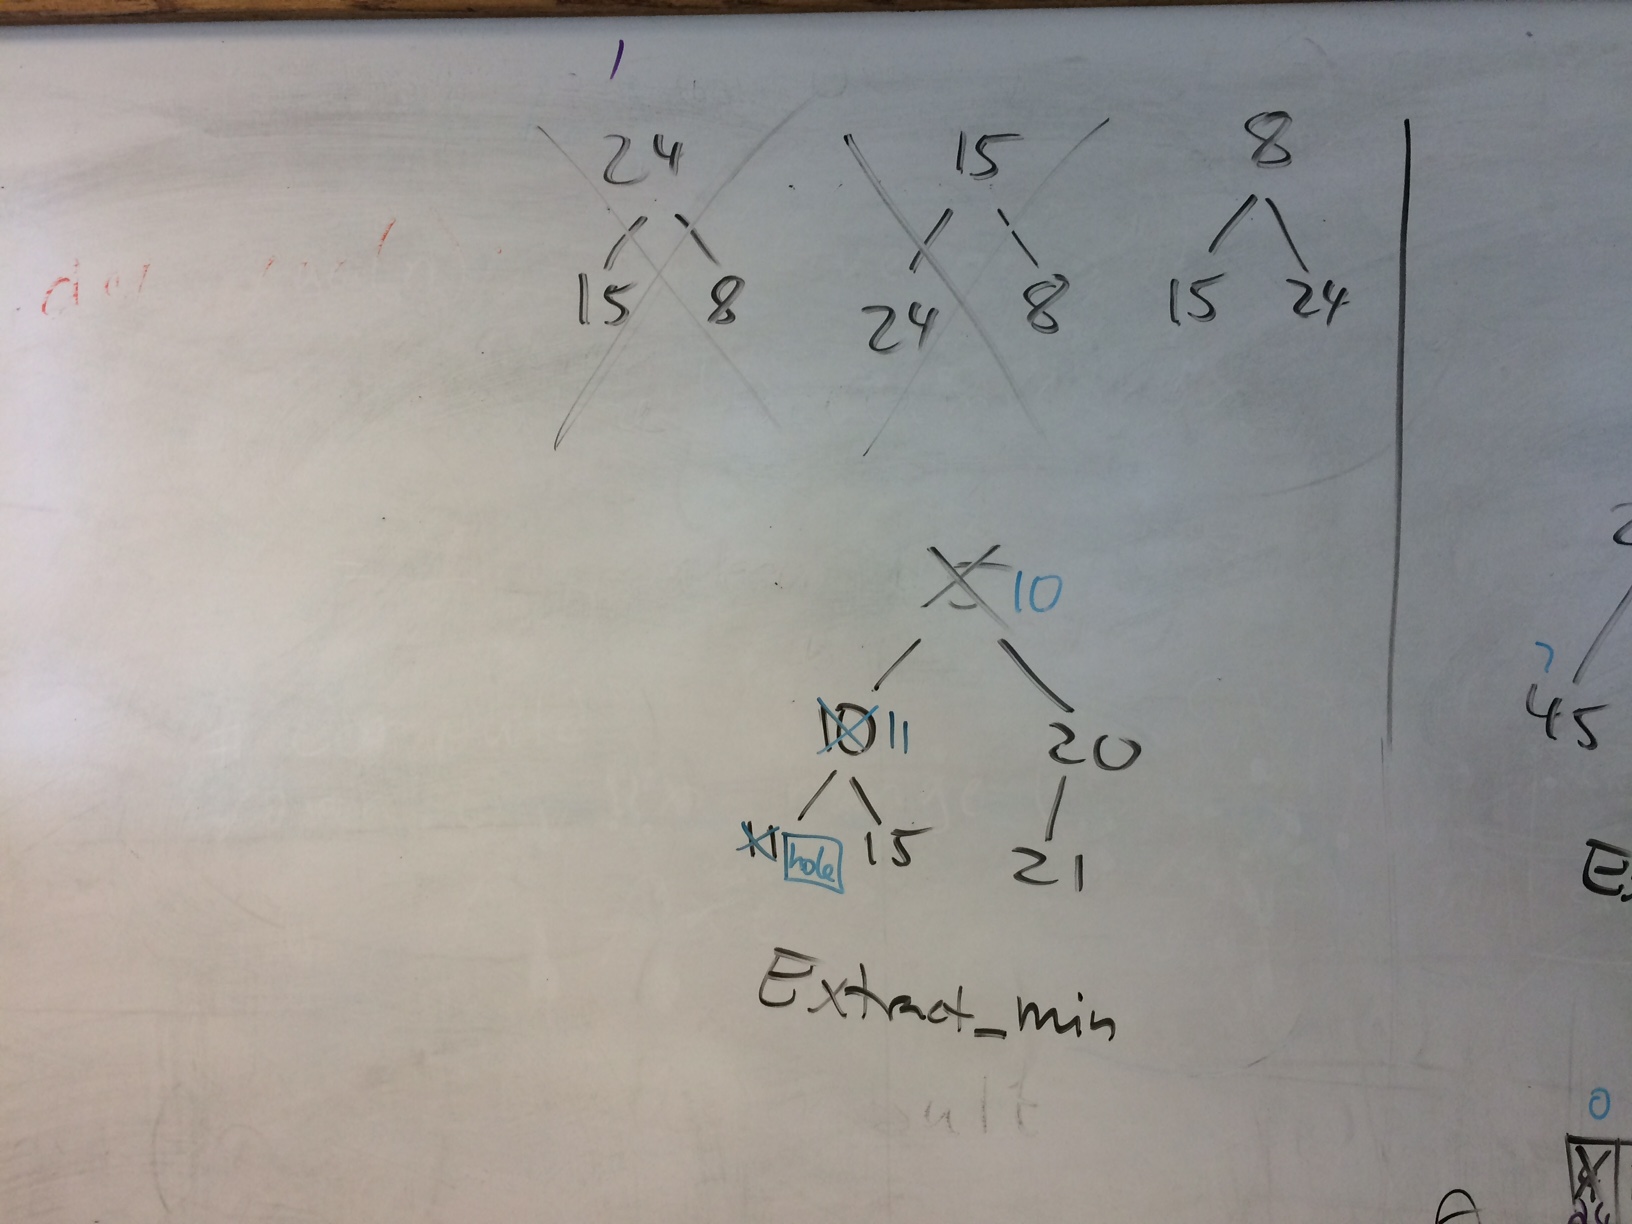 24 15 8
15 8 24 8 15 24
5 10
10 11 20
11 hole 15 21
45
Extract_min
0